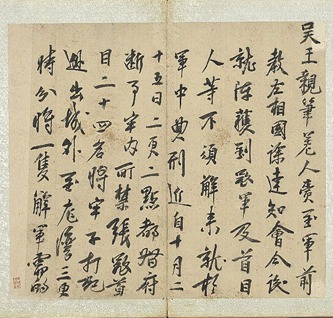 吳王親筆差人賫至軍前
教左相國徐達知會今後
就陣獲到寇軍及首目
人等不須解來就於
軍中典刑近自十月二
十五日二更二點都督府
斷事牢內所禁張寇首
目二十四名將牢子打
越出城外至龍灣三更
時分將一隻解軍需的